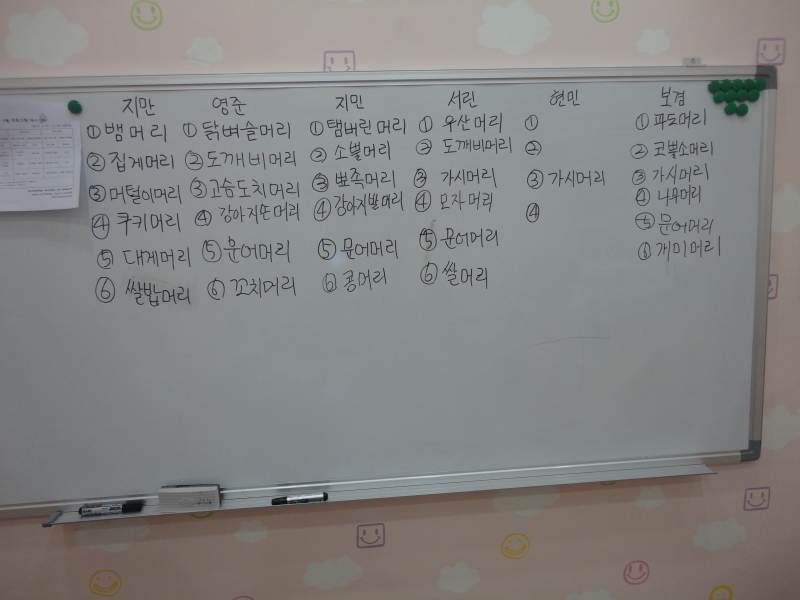 지만 영준 지민 서린 현민 보경
①뱀머리 ①닭벼슬머리 ①탬버린머리 ①우산머리 ① ①파도머리
②집게머리 ②도깨비머리 ②소뿔머리 ②도깨비머리 ② ②코뿔소머리
③머털이머리 ③고슴도치머리 ③뾰족머리 ③가시머리 ③가시머리 ③가시머리
④쿠키머리 ④강아지똥머리 ④강아지발머리 ④모자머리 ④ ④나무머리
⑤대게머리 ⑤문어머리 ⑤문어머리 ⑤문어머리 ⑤문어머리
⑥쌀밥머리 ⑥꼬치머리 ⑥콩머리 ⑥쌀머리 ⑥개미머리